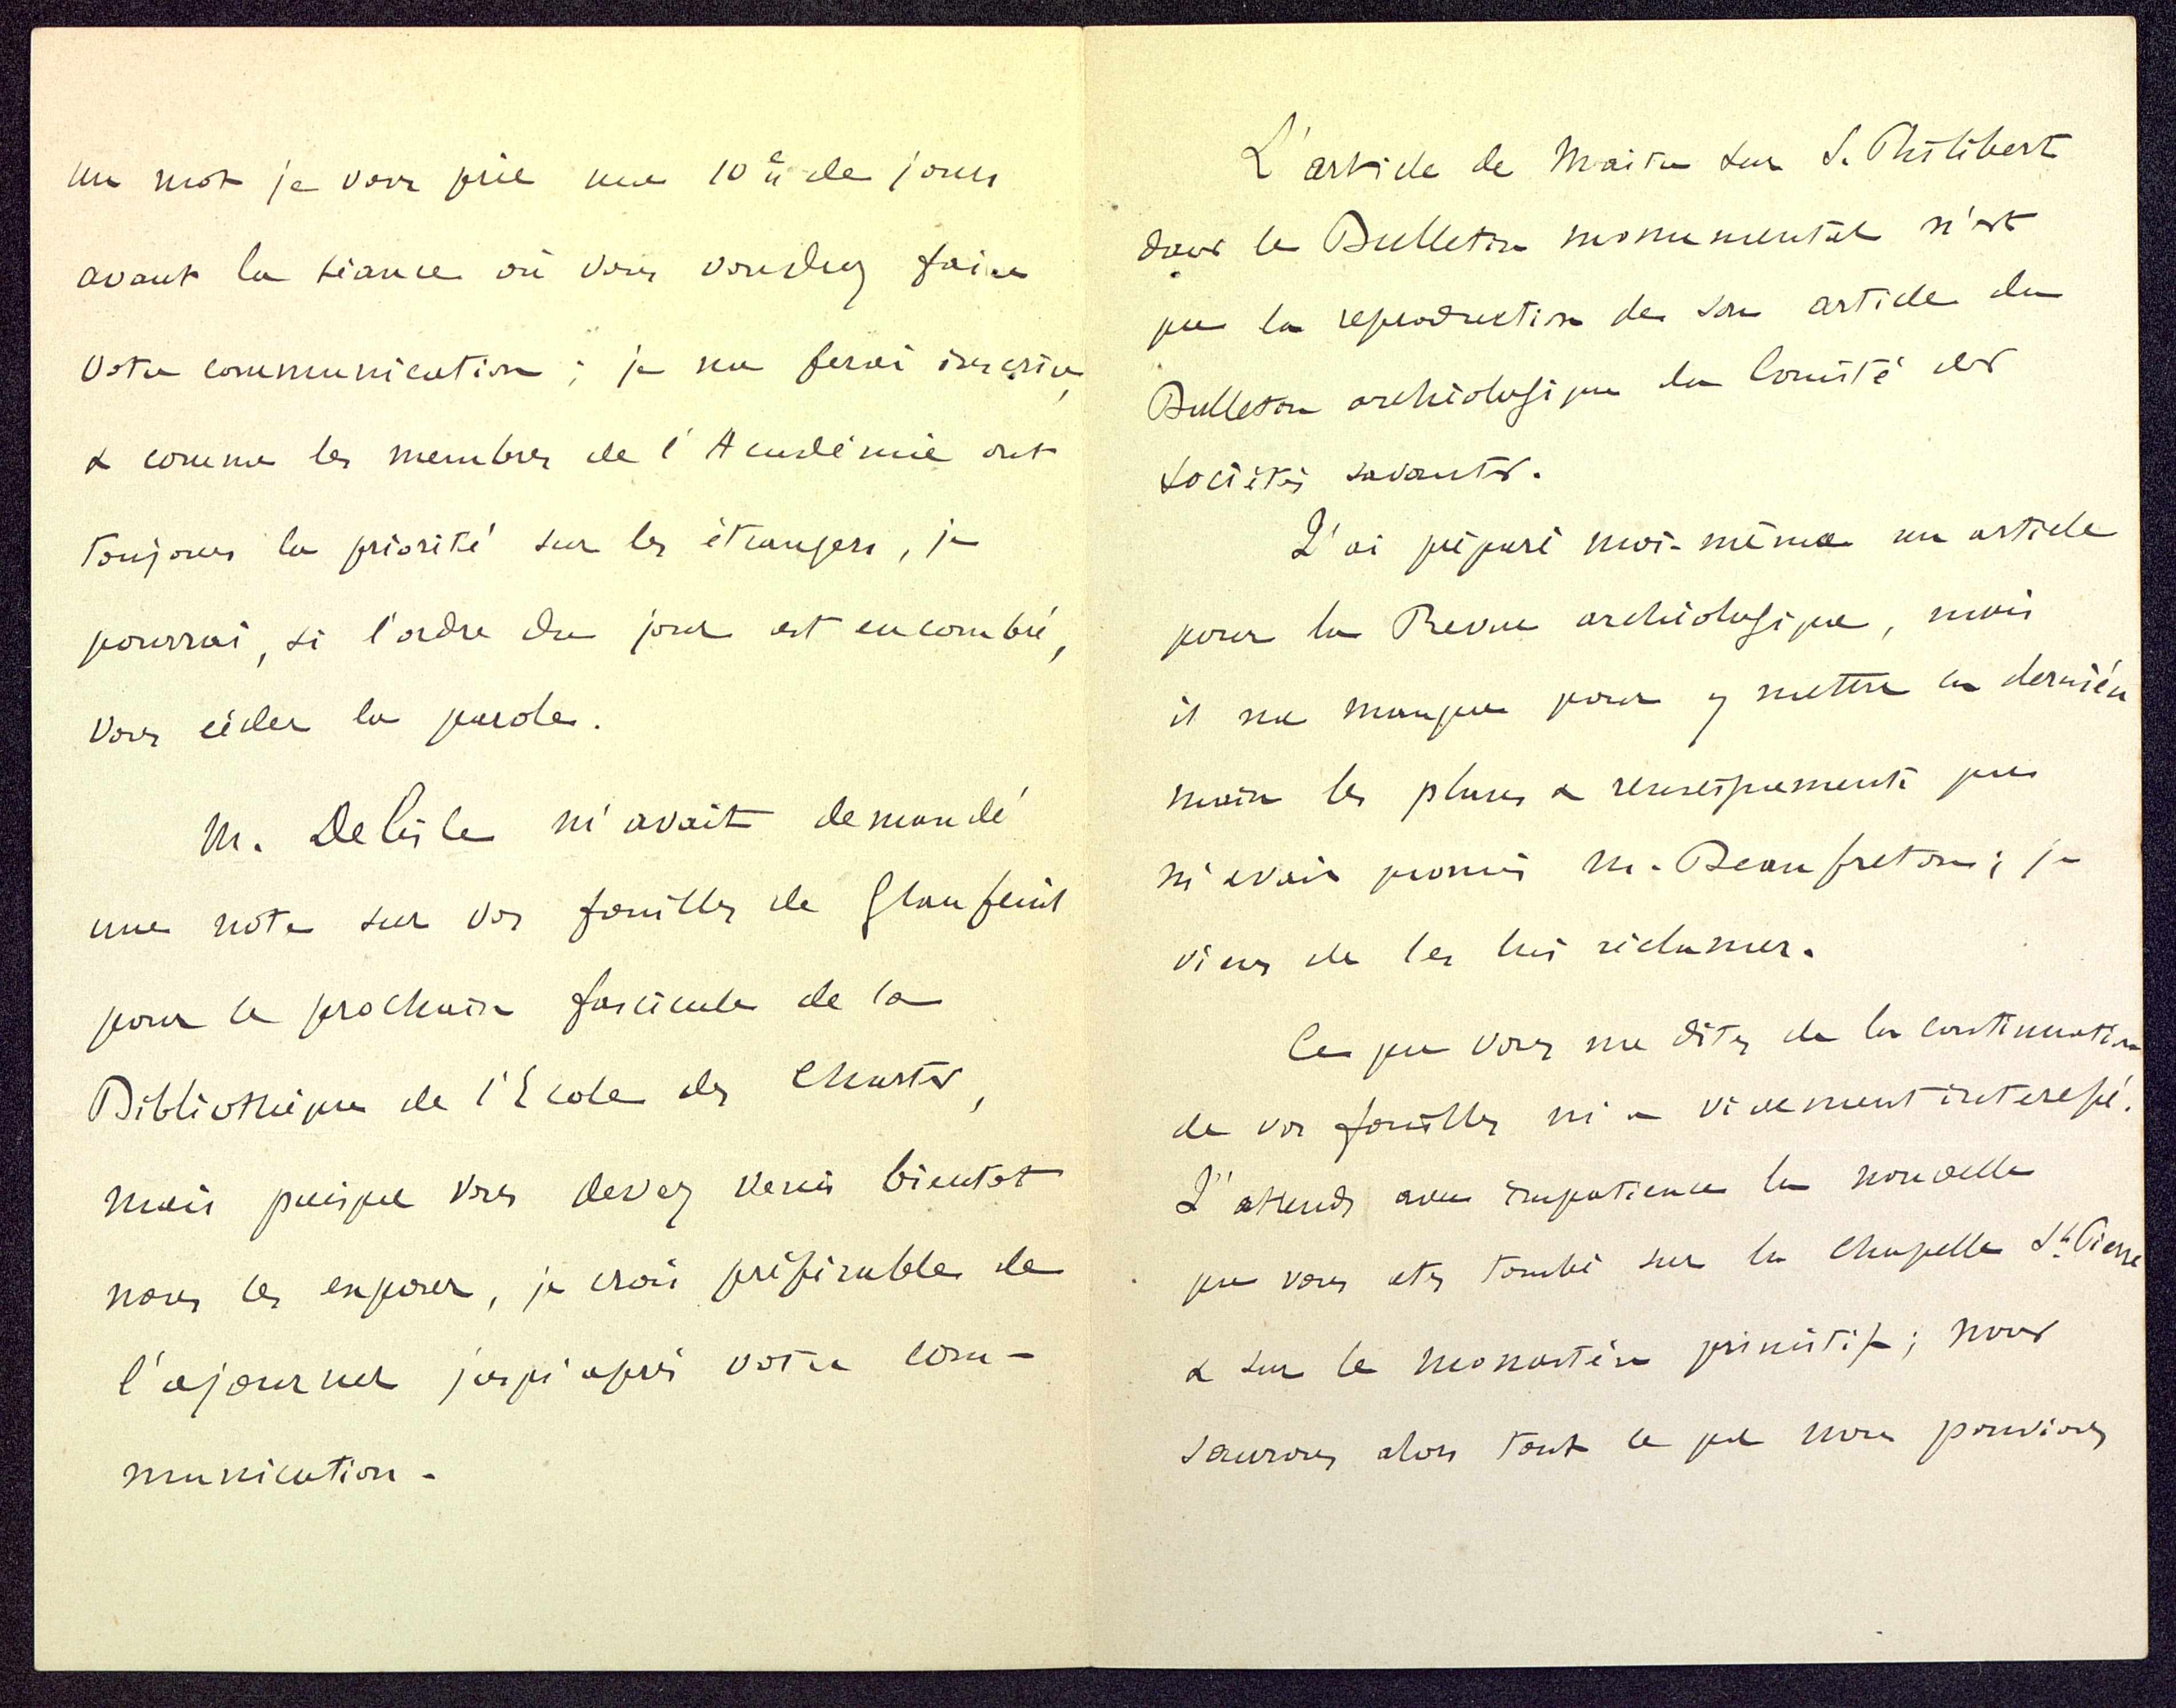 un mot je vous prie une 10ne de jours
avant la séance où vous voudrez faire
votre communication ; je me ferai inscrire,
& comme les membres de l'Académie ont
toujours la priorité sur les étrangers, je
pourrai, si l'ordre du jour est encombré,
vous céder la parole.
M. Delisle m'avait demandé
une note sur vos fouilles de Glanfeuil
pour le prochain fascicule de la
Bibliothèque de l'Ecole des Chartes,
mais puisque vous devez venir bientot
nous les exposer, je crois préférable de
l'ajourner jusqu'après votre com-
munication.
L'article de Maitre sur S. Philibert
dans le Bulletin monumental n'est
que la reproduction de son article du
Bulletin archéologique du Comité des
Sociétés savantes.
J'ai préparé moi-même un article
pour la Revue archéologique, mais
il me manque pour y mettre la dernière
main les plans & renseignements que
m'avait promis M. Beaufreton ; je
viens de les lui réclamer.
Ce que vous me dites de la continuation
de vos fouilles m'a vivement interessé.
J'attends avec impatience la nouvelle
que vous etes tombé sur la chapelle St Pierre
& sur le monastère primitif ; nous
saurons alors tout ce que nous pouvions